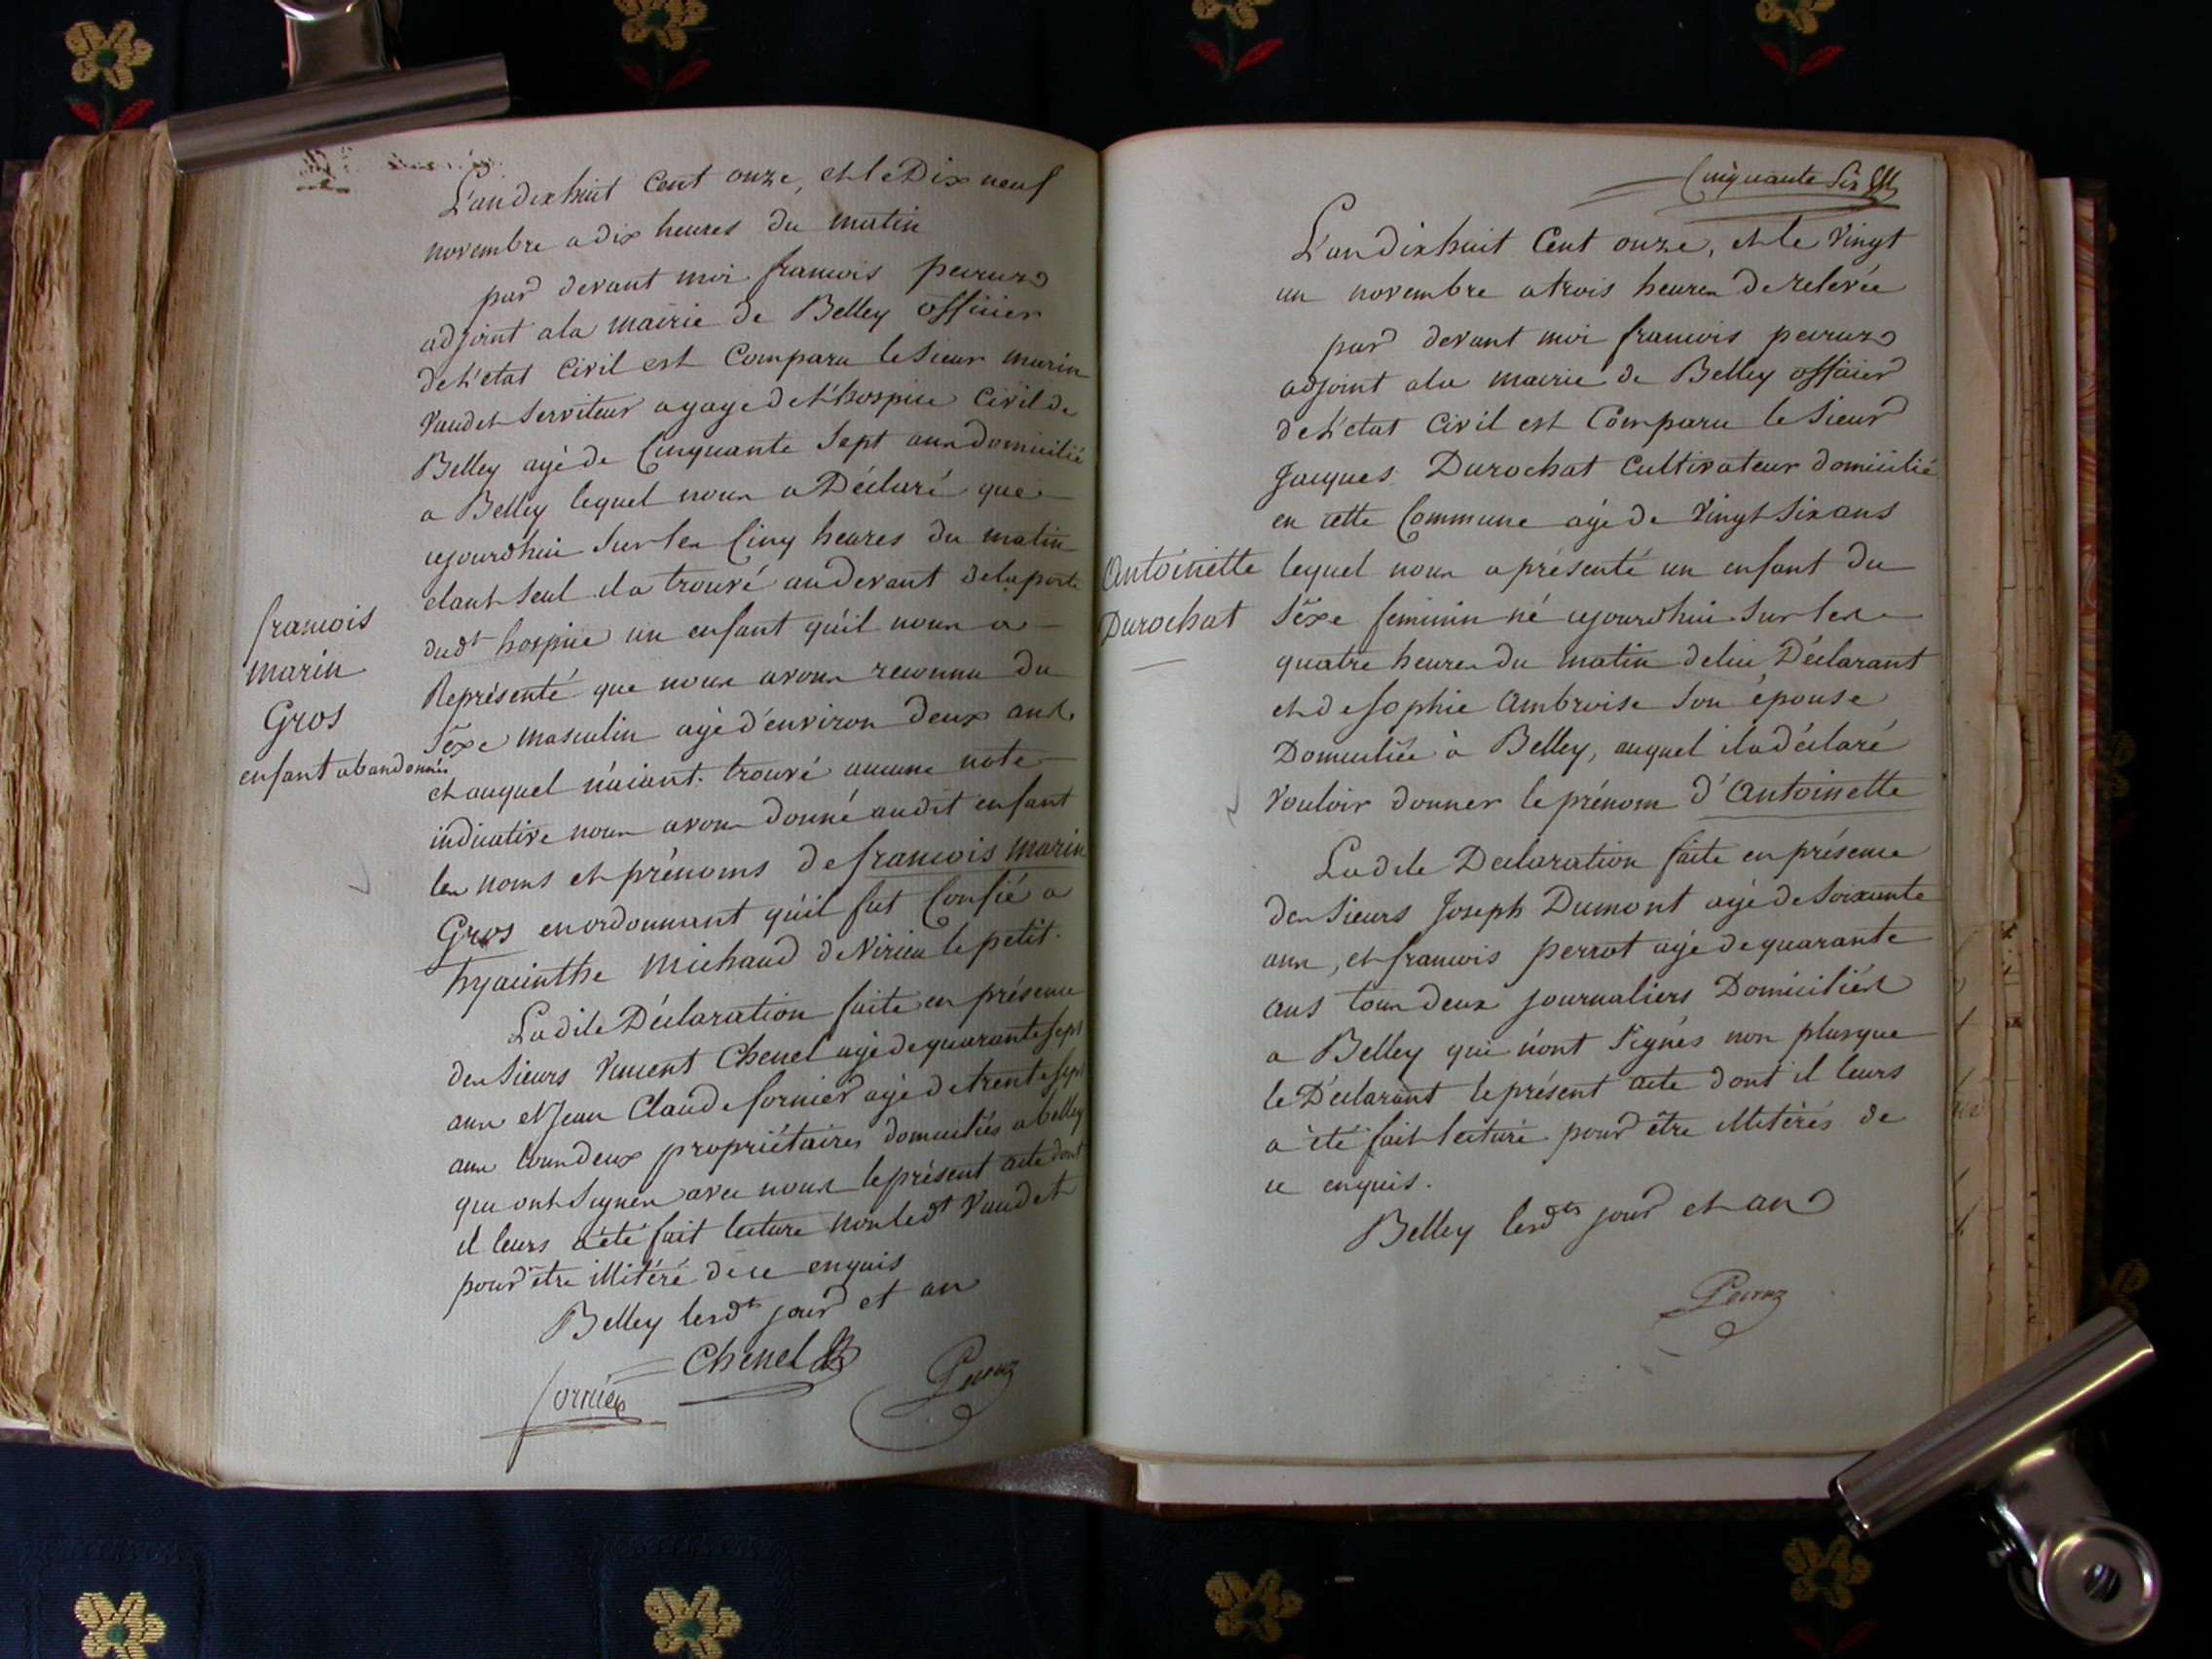 L'an dix huit Cent onze, et le Dix neuf
novembre a dix heures du matin
par devant moi francois peiruz
adjoint a la mairie de Belley officier
de L'etat Civil est Comparu le Sieur marin
Vaudet Serviteur a gage de L'hospice Civil de
Belley agé de Cinquante Sept ans domicilié
a Belley lequel nous a Déclaré que
ajourdhui Sur les Cinq heures du matin
etant Seul il a trouvé au devant de la porte
dudt hospice un enfant qu'il nous a
Représenté que nous avons reconnu du
Séxe masculin agé d'environ deux ans
et auquel n'aiant trouvé aucune note
indicative nous avons donné audit enfant
les noms et prénoms de francois marin
Gros en ordonnant qu'il fut Confié a
hyacinthe Michaud de Virieu le petit.
La dite Déclaration faite en présence
des Sieurs Vincent Chenel agé de quarante Sept
ans et Jean Claude fornier agé de trente Sept
ans tous deux propriétaires domiciliés a belley
qui ont Signés avec nous le présent acte dont
il leurs a été fait lecture non ledt Vaudet
pour être illitéré de ce enquis
Belley lesdts jour et an
Chenel
fornier
Peiruz
francois
marin
Gros
enfant abandonnés
Cinquante Six
L'an dix huit Cent onze, et le Vingt
un novembre a trois heures de relevée
par devant moi francois peiruz
adjoint a la mairie de Belley officier
de L'etat Civil est Comparu le Sieur
Jacques Durochat Cultivateur domicilié
en cette Commune agé de Vingt Six ans
lequel nous a présenté un enfant du
Séxe feminin né ajourdhui Sur les
quatre heures du matin de lui Déclarant
et de Sophie Ambroise Son épouse
Domiciliée à Belley, auquel il a déclaré
Vouloir donner le prénom d'Antoinette
La dite Declaration faite en présence
des Sieurs Joseph Dumont agé de Soixante
ans, et francois perrot agé de quarante
ans tous deux journaliers Domiciliés
a Belley qui n'ont Signés non plus que
le Déclarant le présent acte dont il leurs
a été fait lecture pour être illitérés de
ce enquis.
Belley lesdts jour et an
Peiruz
Antoinette
Durochat